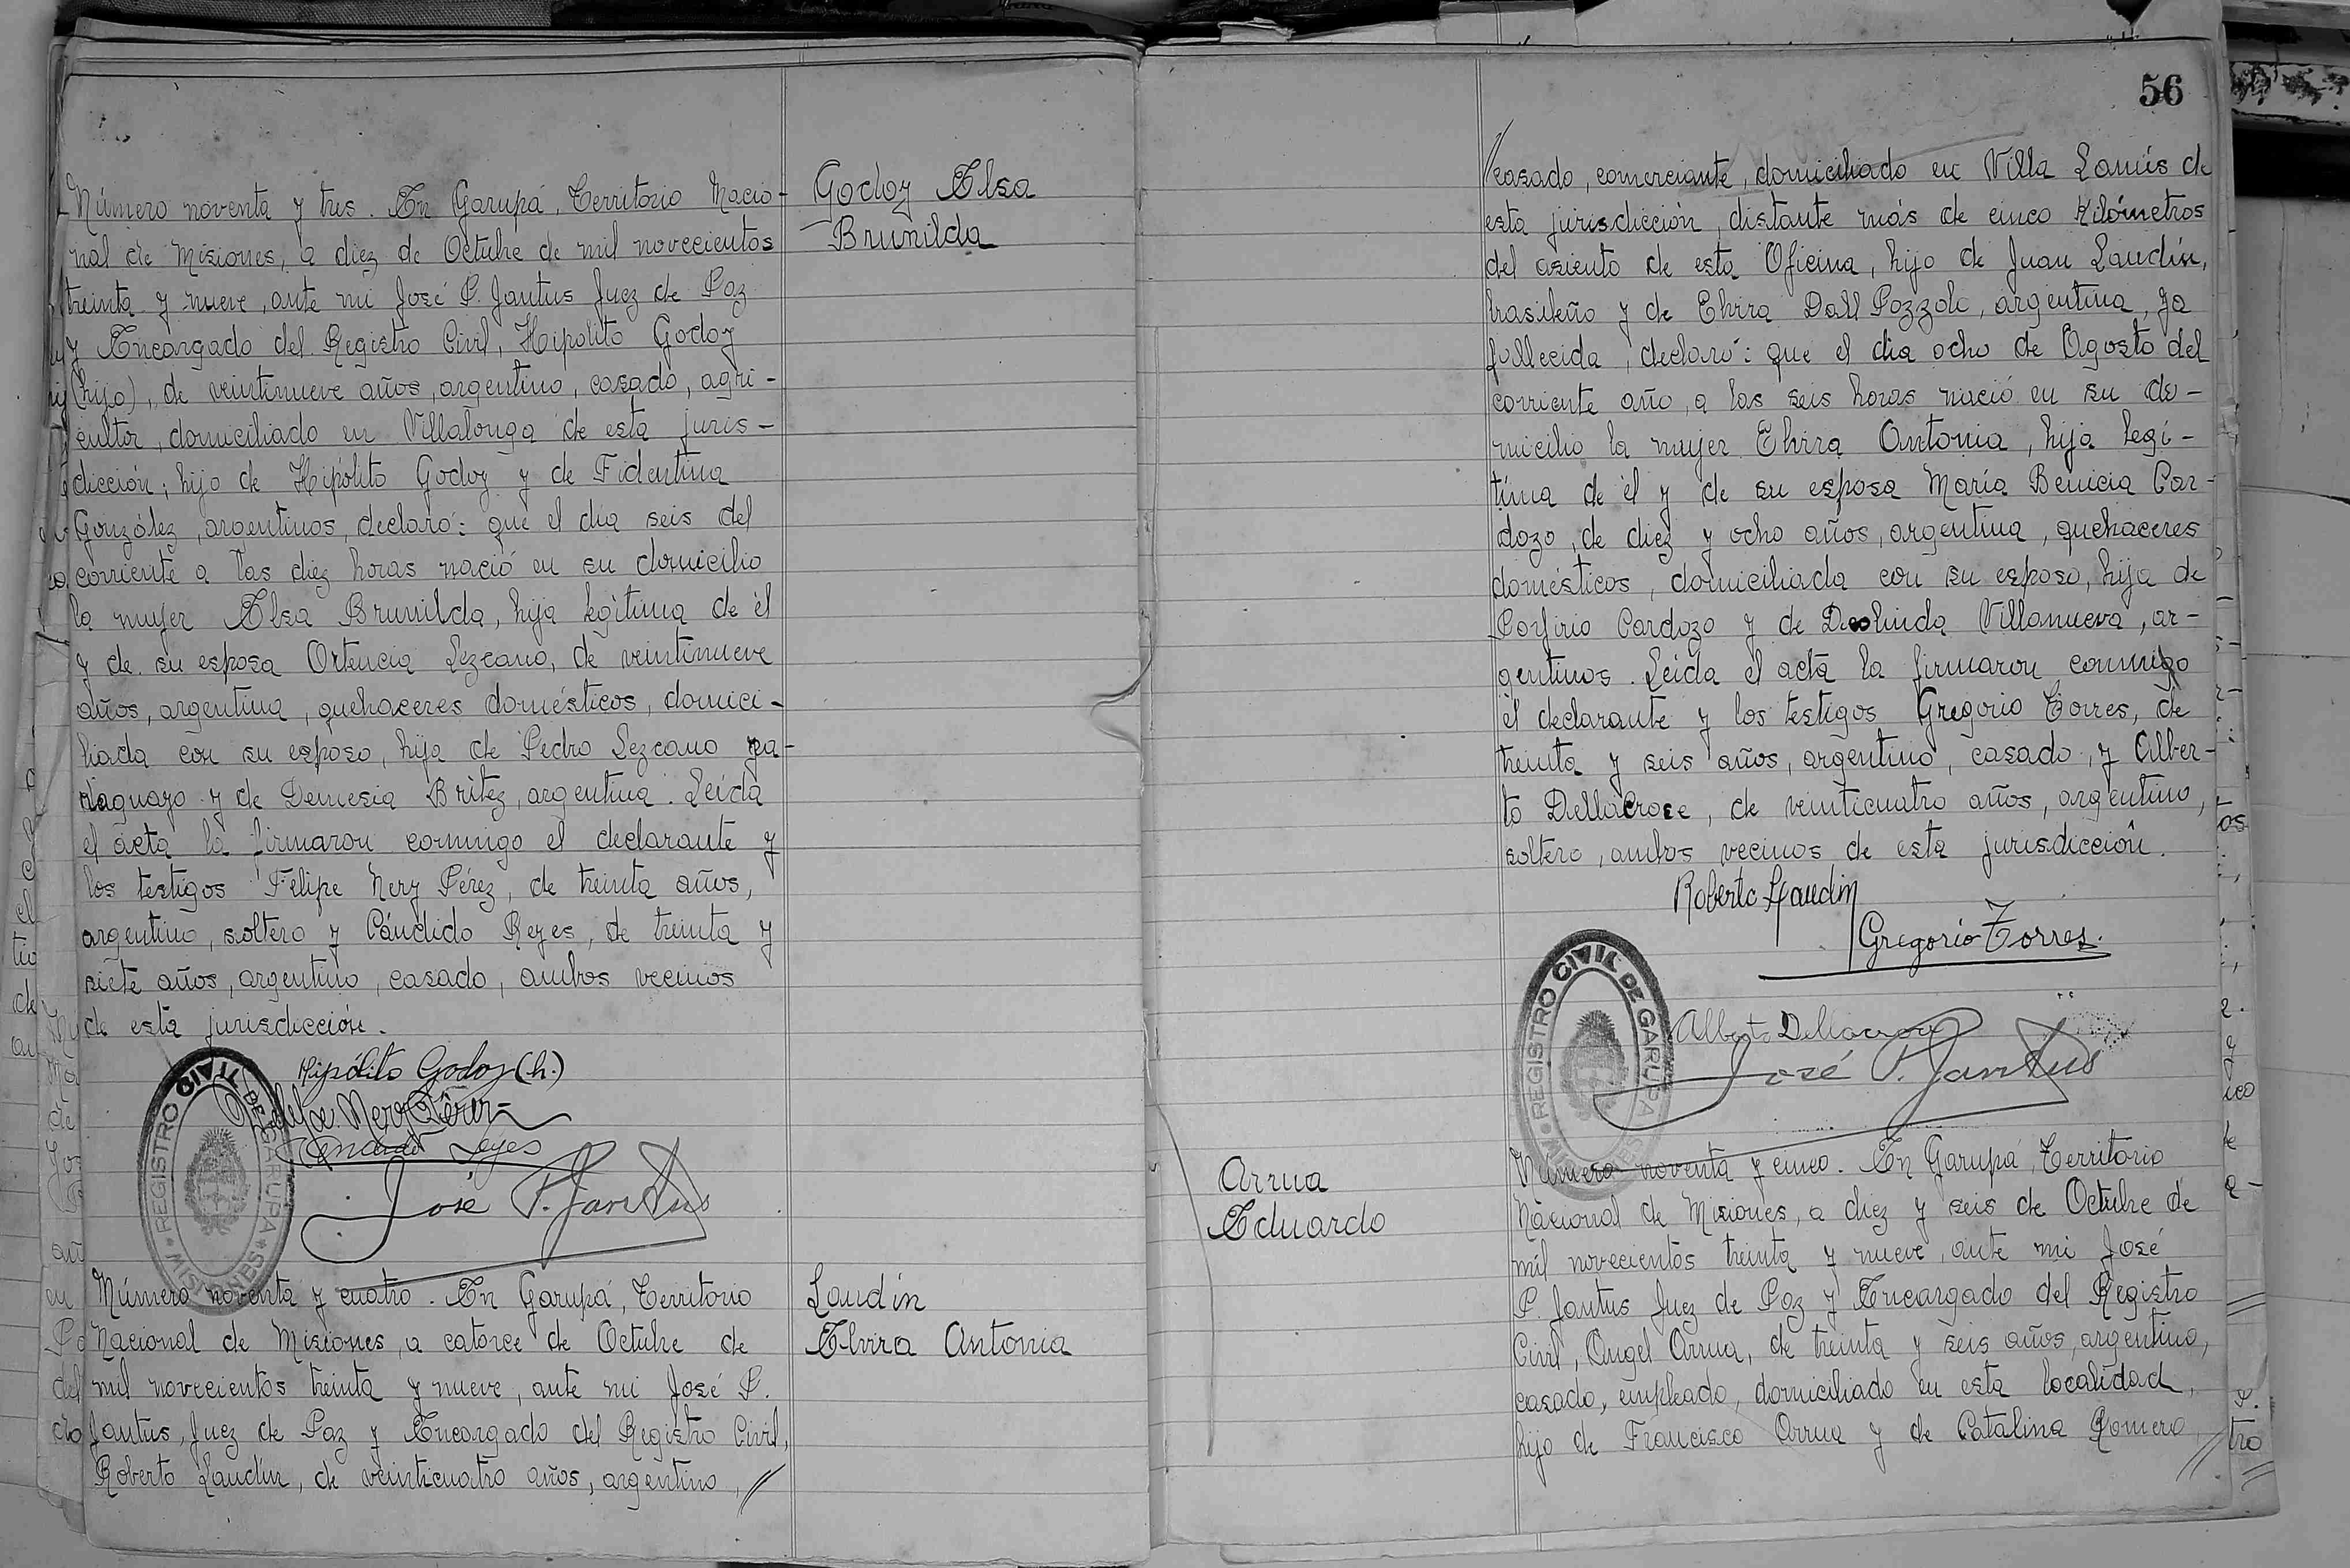 Número noventa y tres. En Garupá, Territorio Nacio-
nal de Misiones, a diez de Octubre de mil novecientos
treinta y nueve, ante mi José P. Jantus Juez de Paz
y Encargado del Registro Civil, Hipólito Godoy
(hijo), de veintinueve años, argentino, casado, agri-
cultor, domiciliado en Villalonga de esta juris-
dicción; hijo de Hipólito Godoy y de Fidentina
González, argentinos, declaró: que el día seis del
corriente a las diez horas nació en su domicilio
la mujer Elsa Brunilda, hija legítima de él
y de su esposa Ortencia Lezcano, de veintinueve
años, argentina, quehaceres domésticos, domici-
liada con su esposo, hija de Pedro Lezcano pa-
raguayo y de Demesia Britez, argentina. Leida
el acta la firmaron conmigo el declarante y
los testigos Felipe Nery Pérez, de treinta años,
argentino, soltero y Cándido Reyes, de treinta y
siete años, argentino, casado, ambos vecinos
de esta jurisdicción.
Hipólito Godoy (h.)
Felipe Nery Pérez
Candido Reyes
José P. Jantus
REGISTRO CIVIL DE GARUPA
MISIONES
Godoy Elsa
Brunilda
Número noventa y cuatro. En Garupá, Territorio
Nacional de Misiones, a catorce de Octubre de
mil novecientos treinta y nueve, ante mi José P.
Jantus, Juez de Paz y Encargado del Registro Civil,
Roberto Laudín, de veinticuatro años, argentino, //
Laudín
Elvira Antonia
56
//casado, comerciante, domiciliado en Villa Lanús de
esta jurisdicción, distante más de cinco Kilómetros
del asiento de esta Oficina, hijo de Juan Laudín,
brasileño y de Elvira Dall Pozzolo, argentina, ya
fallecida, declaró: que el día ocho de Agosto del
corriente año, a las seis horas nació en su do-
micilio la mujer Elvira Antonia, hija legí-
tima de él y de su esposa María Benicia Car-
dozo, de diez y ocho años, argentina, quehaceres
domésticos, domiciliada con su esposo, hija de
Porfirio Cardozo y de Deolinda Villanueva, ar-
gentinos. Leida el acta la firmaron conmigo
el declarante y los testigos Gregorio Torres, de
treinta y seis años, argentino, casado, y Alber-
to Dellacroce, de veinticuatro años, argentino,
soltero, ambos vecinos de esta jurisdicción.
Roberto Laudin
Gregorio Torres.
Alberto Dellacroce
José P. Jantus
REGISTRO CIVIL DE GARUPA
MISIONES
Arrua
Eduardo
Número noventa y cinco. En Garupá, Territorio
Nacional de Misiones, a diez y seis de Octubre de
mil novecientos treinta y nueve, ante mi José
P. Jantus Juez de Paz y Encargado del Registro
Civil, Angel Arrua, de treinta y seis años, argentino,
casado, empleado, domiciliado en esta localidad,
hijo de Francisco Arrua y de Catalina Romero, //